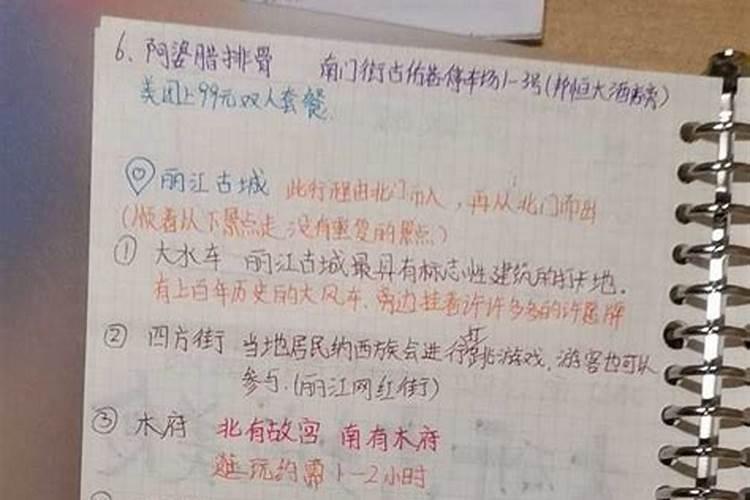 6、阿婆腊排骨 南门街古佑巷停车场1-3号(祥恒大酒店旁)
美团上99元双人套餐
丽江古城 此行程由北门而入,再从北门而出
(顺着以下景点走,没有重复的景点)
① 大水车 丽江古城最具有标志性建筑的打卡地.
有上百年历史的大风车、旁边挂着许许多多的许愿牌
② 四方街 当地居民纳西族会进行打跳游戏,游客也可以
参与.(丽江网红街)
③ 木府 北有故宫 南有木府
游玩约需1-2小时